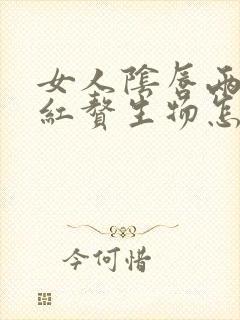 女人陰唇兩
紅贅生物怎
今何惜